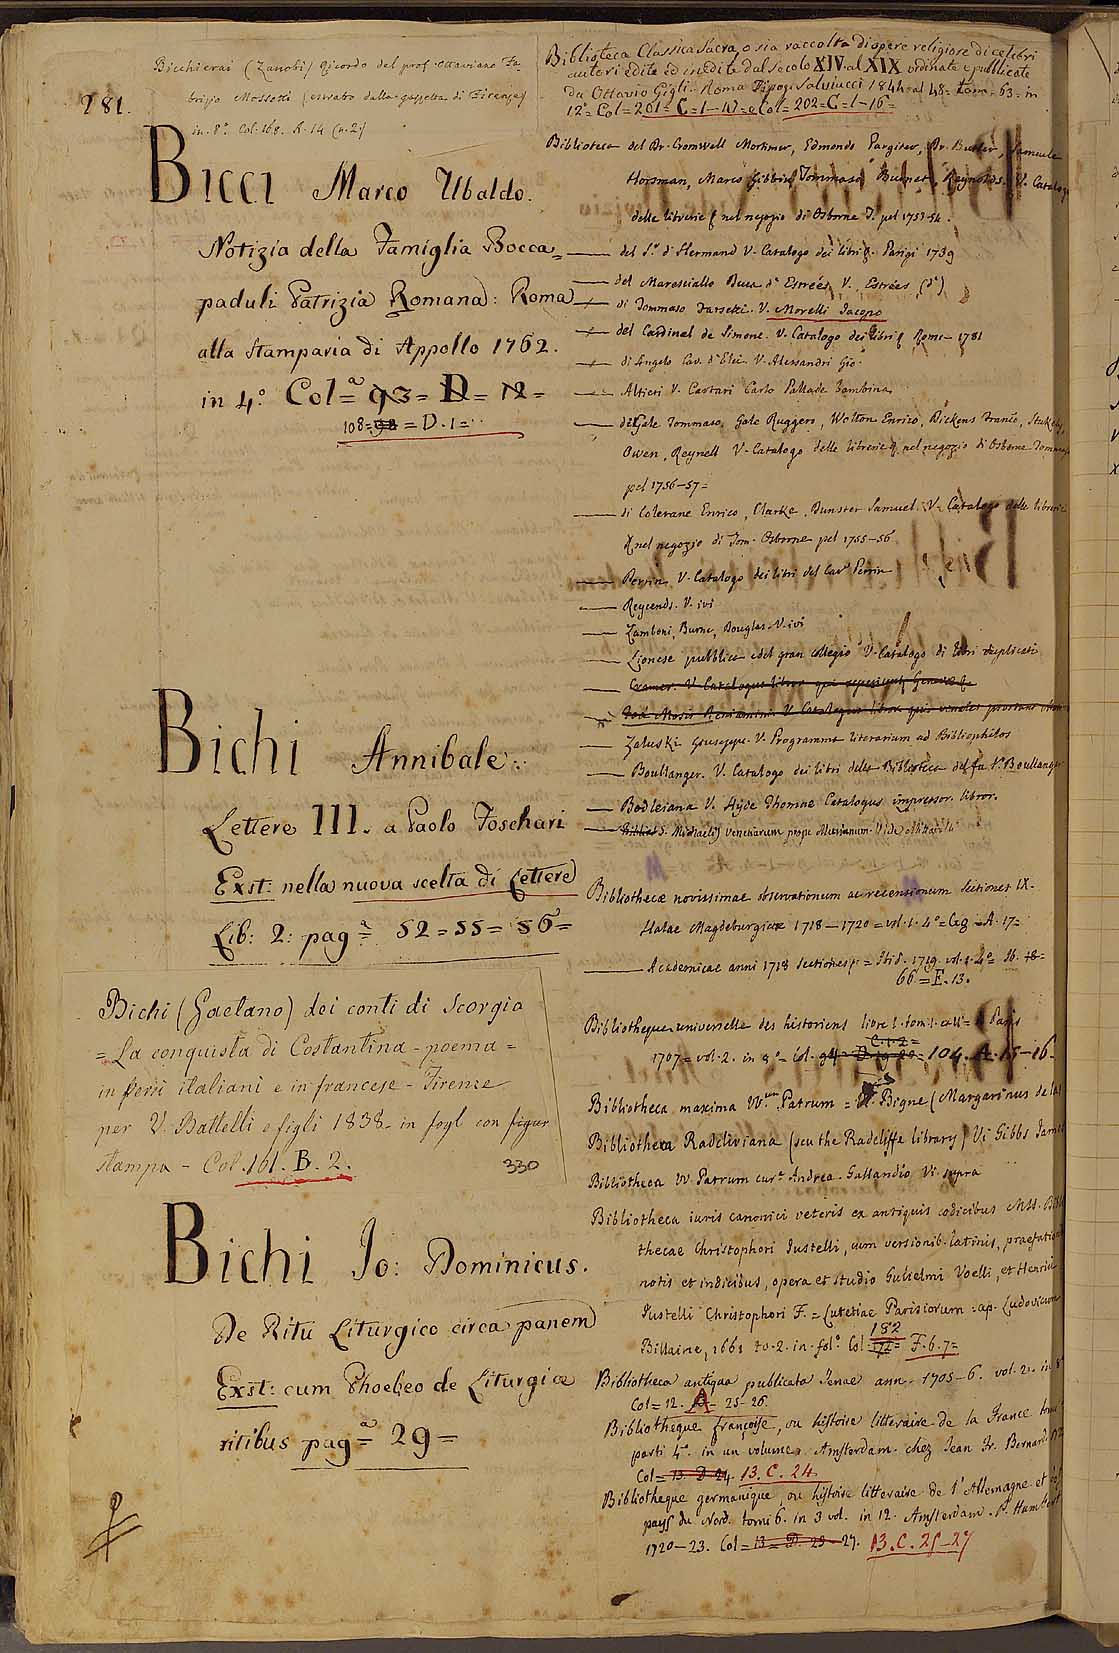 281.
Bicchierai (Zanobi) Ricordo del prof. Ottaviano Fa-
brizio Mossotti (estratto dalla gazzetta di Firenze)
in 8.° Col. 168. K. 14 (n. 2)
Bicci Marco Ubaldo.
Notizia della Famiglia Bocca=
paduli Patrizia Romana: Roma
alla Stamparia di Appollo 1762.
in 4.° Col.a = 93 = D = 12 =
108 = 98 = D. 1 =
Bichi Annibale.
Lettere III. a Paolo Foschari
Exst: nella nuova scelta di Lettere
Lib: 2: pag.a = 52 = 55 = 56 =
Bichi (Gaetano) dei conti di Scorgia
= La conquista di Costantina - poema =
in versi italiani e in francese - Firenze
per V. Battelli e figli 1838. in fogl con figur
stampa - Col. 161. B. 2.
330
Bichi Jo: Dominicus.
De Ritu Liturgico circa panem
Exst: cum Phoebeo de Liturgiæ
ritibus pag.a = 29 =
Biblioteca Classica Sacra o sia raccolta di opere religiose di celebri
autori edite ed inedite dal secolo XIV. al XIX ordinate e pubblicate
da Ottavio Gigli. Roma Tipog. Salviucci 1844 al 48 = tom. 63 = in
12° = Col = 201 = C = 1-47 = e Col = 202 = C = 1-16 =
Biblioteca del Dr. Cromwell Mortimer, Edmondo Pargiter, Dr. Butler, Samuele
Horsman, Marco Gibbie Tommaso Burnet, Reynolds. V. Catalogo
delle librerie nel negozio di Osborne T. pel 1753-54.
— del S.r d'Hermand V. Catalogo dei libri &. Parigi 1739
— del Maresciallo Duca d'Estrées V. Estrées (d')
— di Tommaso Farsetti. V. Morelli Jacopo
— del Cardinal de Simone. V. Catalogo dei libri & Roma - 1781
— di Angelo Cav. d'Elci. V. Alessandri Gio.
— Altieri V. Cartari Carlo Pallade bambina
— del Gale Tommaso, Gale Ruggero, Wotton Enrico, Dickens Franc., Stukely
Owen, Reynell V. Catalogo delle librerie & nel negozio di Osborne Tommaso
pel 1756-57 =
— di Colerane Enrico, Clarke, Dunster Samuel. V. Catalogo delle librerie
& nel negozio di Tom. Osborne pel 1755-56
— Perrin V. Catalogo dei libri del Cav. Perrin
— Reycends. V. ivi
— Zamboni, Burne, Douglas. V. ivi
— Lionese pubblica e del gran collegio V. Catalogo di libri duplicati
— Cramer. V. Catalogus libror. qui reperiunt. Genevæ &
— Mosis Beniamini V. Catalogus libror. qui venales prostant
— Zaluski Giuseppe. V. Programma literarium ad Bibliophilos
— Boullanger. V. Catalogo dei libri della Biblioteca del fu Sr. Boullanger
— Bodleiana V. Hyde Thomæ Catalogus impressor. libror.
— S. Michaelis Venetiarum prope Murianum. Vide Mittarelli
Bibliothecæ novissimæ observationum ac recensionum Sectiones IX.
Halae Magdeburgicæ 1718 — 1720 = vol. 1. 4° = Gg = A. 17 =
— Academicae anni 1718 sectiones = Ibid. 1719. vol. 1. 4° =
66 = E. 13.
Bibliotheque universelle des historiens livre 1. tom. 1. e II = Paris
C. 1. 2 =
1707 = vol. 2. in 8° = Col. 94 = 104. A. 15-16.
Bibliotheca maxima VV.um Patrum = V. Bigne (Margarinus de la)
Bibliotheca Radcliviana (seu the Radcliffe library) Vi Gibbs James
Bibliotheca VV. Patrum cur.a Andrea Gallandio Vi. supra
Bibliotheca iuris canonici veteris ex antiquis codicibus MSS. Biblio
thecae Christophori Justelli, cum versionib. latinis, praefation
notis et indicibus, opera et studio Gulielmi Voelli, et Henrici
Justelli Christophori F. = Lutetiae Parisiorum ap. Ludovicum
Billaine, 1661 to. 2. in fol.° Col = 172 = F. 6. 7 =
182
Bibliotheca antiqua publicata Jenae ann. 1705-6. vol. 2. in 8°
Col = 12. A = 25-26.
Bibliotheque françoise, ou histoire litteraire de la France tom
parti 4. in un volume. Amsterdam chez Jean Fr. Bernard
Col = 13. D. 24. 13. C. 24
Bibliotheque germanique, ou histoire litteraire de l'Allemagne et
pays du Nord. tomi 6. in 3 vol. in 12. Amsterdam. P. Humbert
1720-23. Col = 13 = D. 25 - 27. 13. C. 25-27